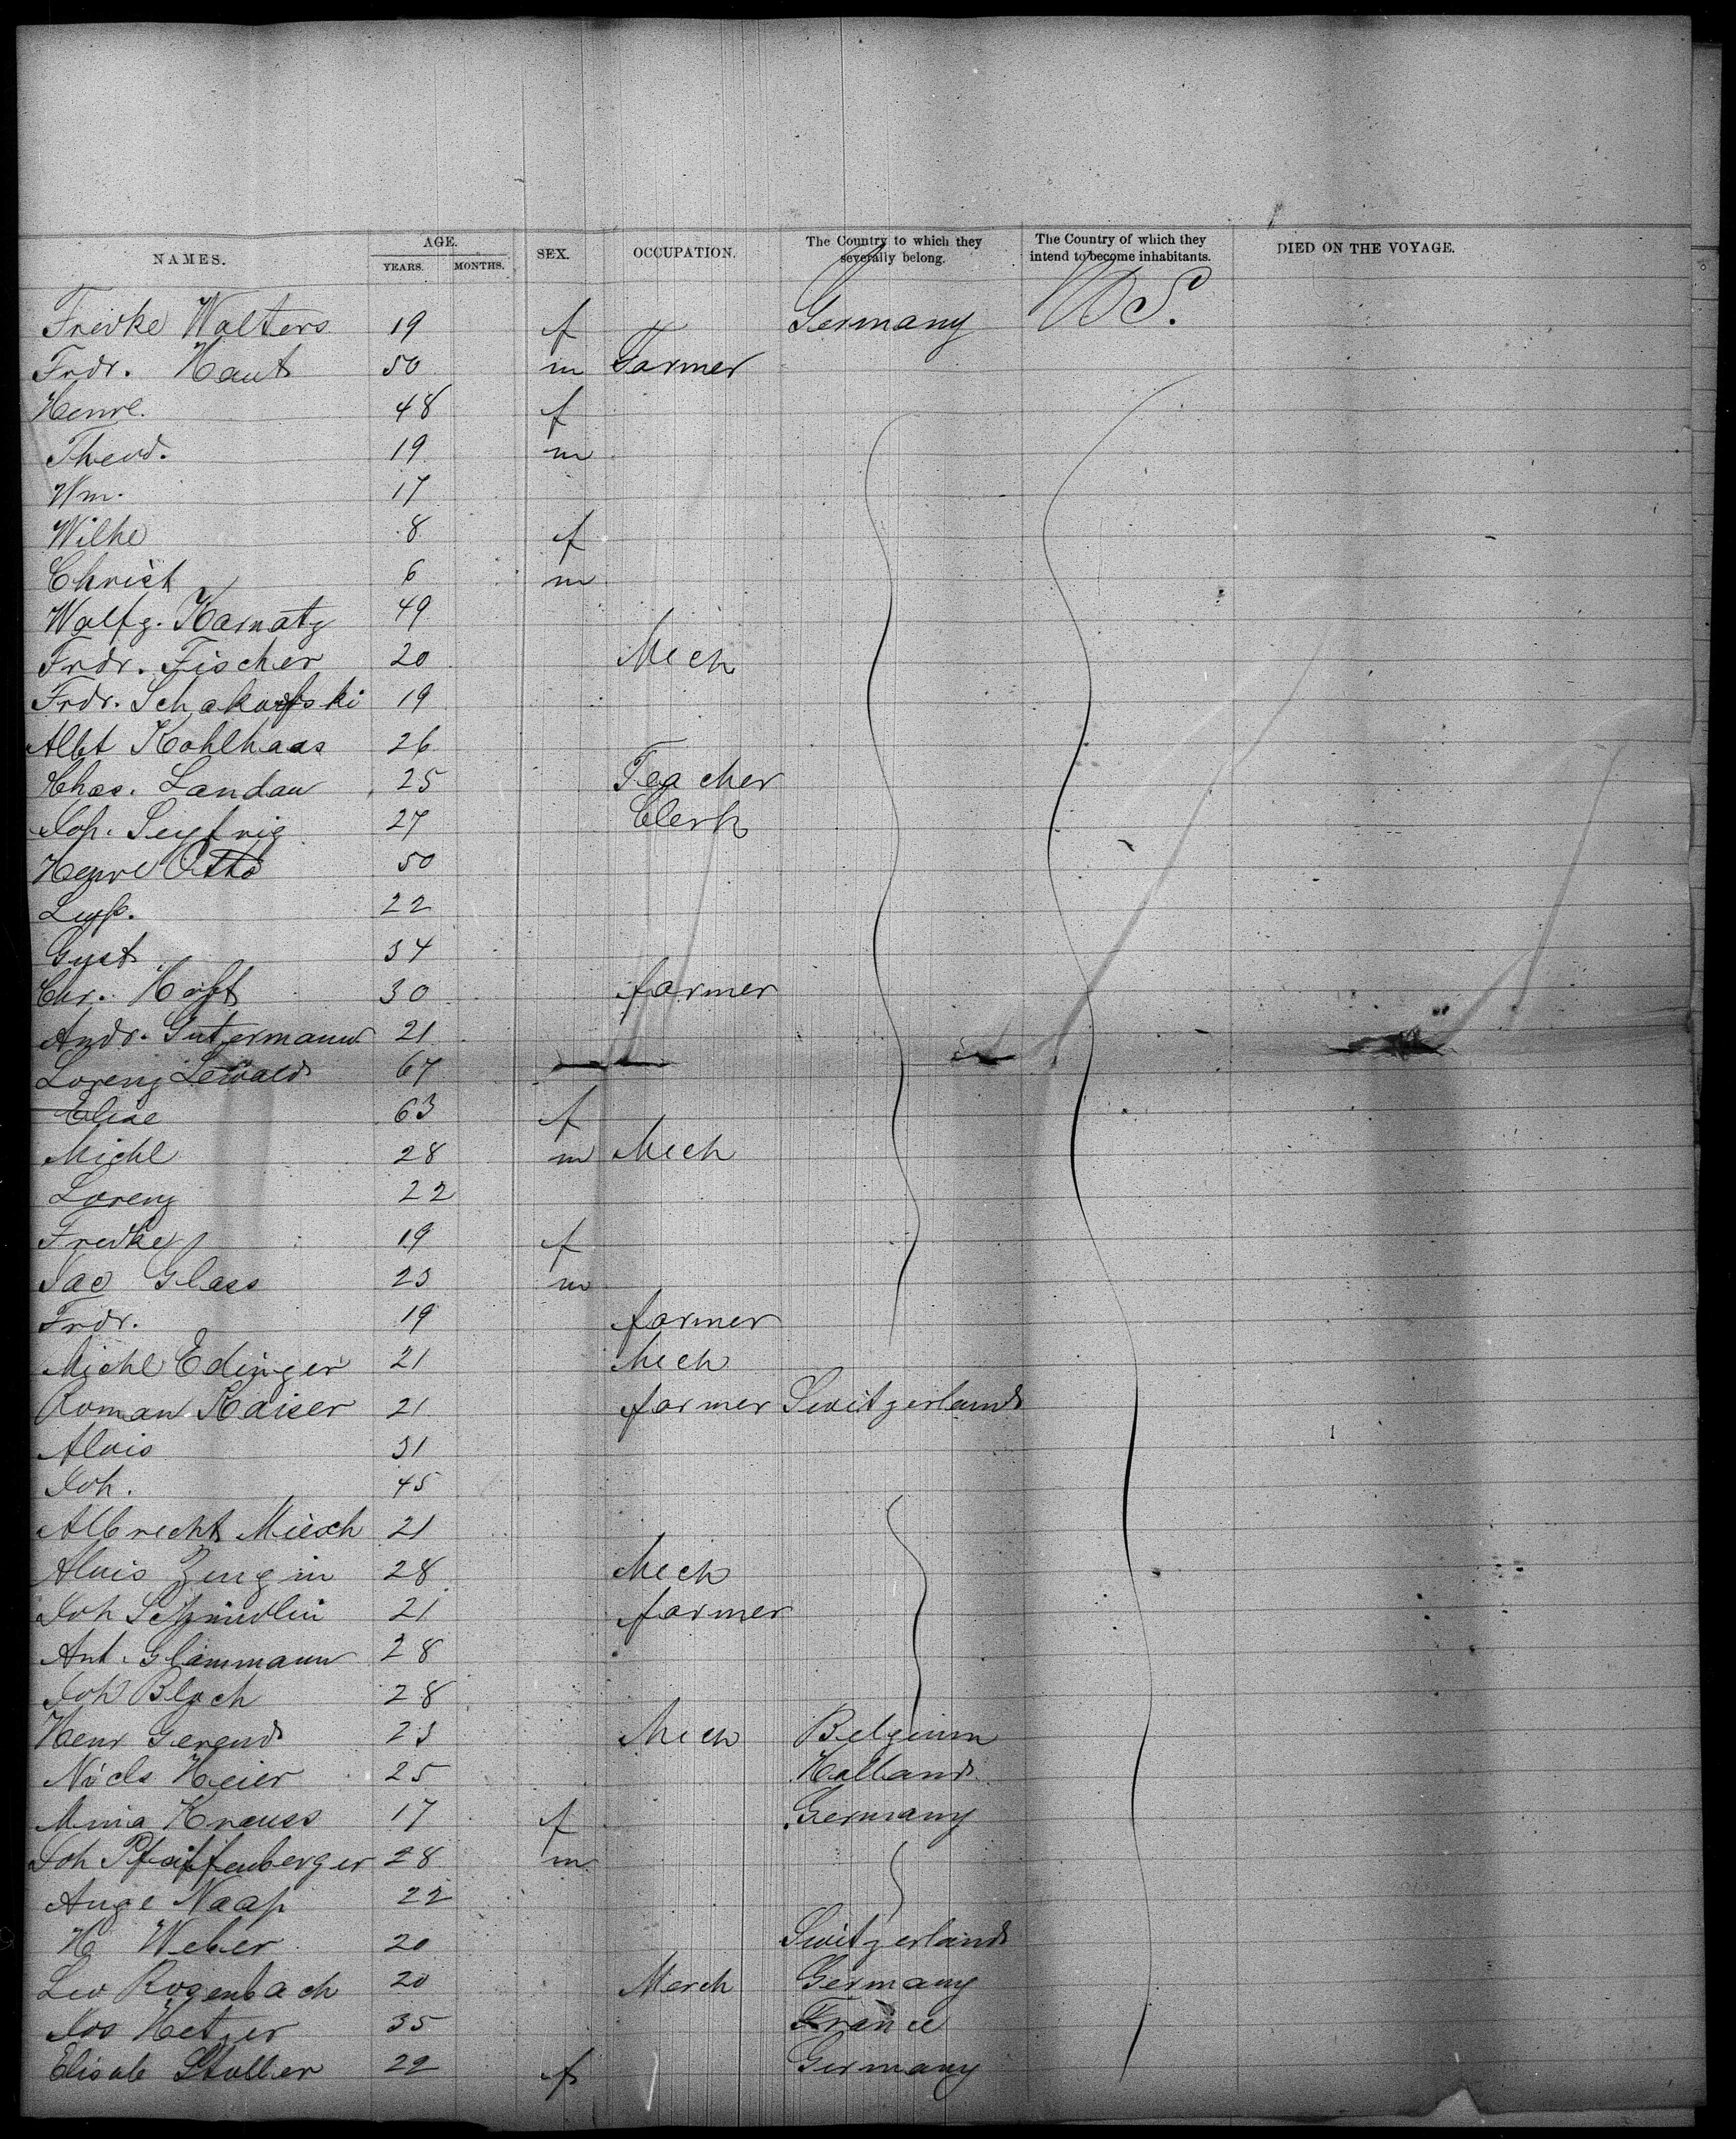 NAMES. AGE. YEARS. MONTHS. SEX. OCCUPATION. The Country to which they severally belong. The Country of which they intend to become inhabitants. DIED ON THE VOYAGE.
Fredke Walters 19 f Germany U S.
Frdr. Haut 50 m Farmer
Henrl. 48 f
Theod. 19 m
Wm. 17
Wilhe 8 f
Christ 6 m
Wolfg. Harnatz 49
Frdr. Fischer 20 Mech
Frdr. 19
Albt Kohlhaas 26
Chas. Landau 25 Teacher
Jos. Seyfrig 27 Clerk
Otto 50
22
Gust 34
Chr. Hoft 30 farmer
Andr. Gutermann 21
Lorenz Lewald 67
Elise 63 f
Michl 28 m Mech
Lorenz 22
Fredke 19 f
Jac Glass 23 m
Frdr. 19 farmer
Michl Edinger 21 Mech
Roman Kaiser 21 farmer Switzerland
Alois 31
Joh. 45
Albrecht Miesch 21
Alois Zengin 28 Mech
Joh Schindlin 21 farmer
Ant. Glammann 28
Joh Bloch 28
Henr Gerend 23 Mech Belgium
Nicls Heier 25 Holland
Mina Krauss 17 f Germany
Joh Pfeiffenberger 28 m
Auge Naap 22
H Weber 20 Switzerland
Leo Rosenbach 20 Merch Germany
Jos Hetzer 35 France
Elisab Stoller 22 f Germany